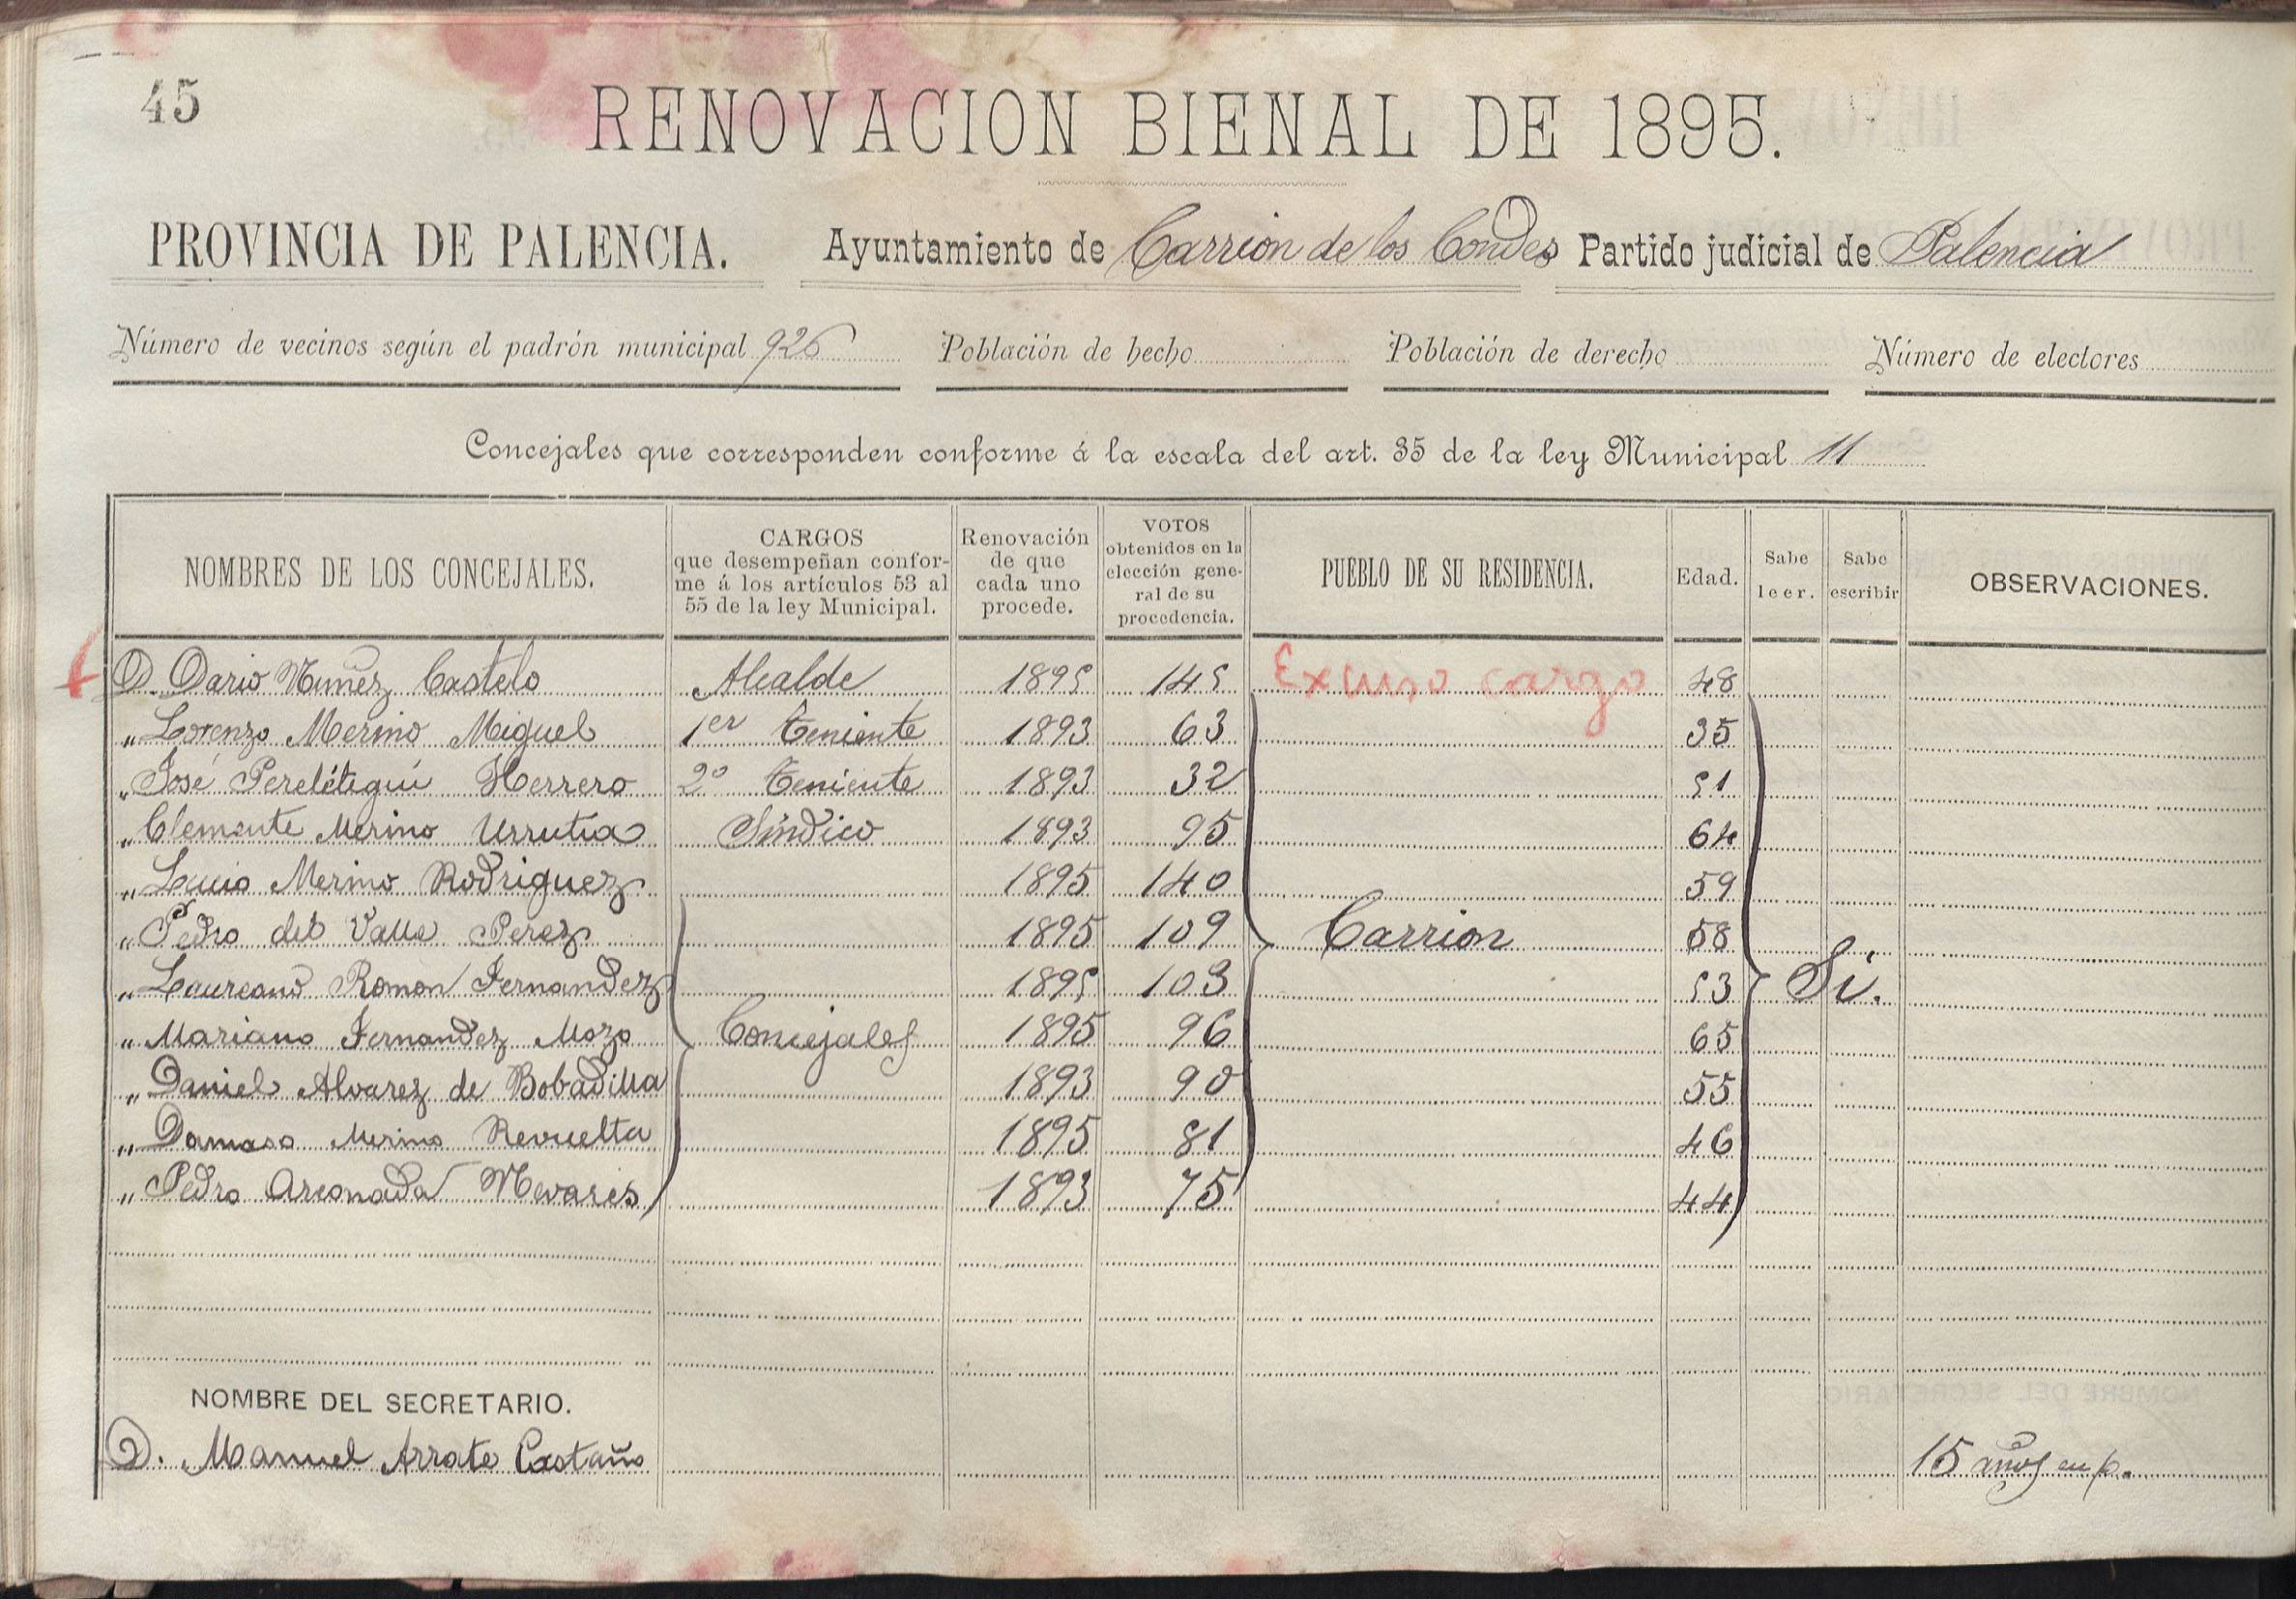 45
RENOVACION BIENAL DE 1895.
PROVINCIA DE PALENCIA. Ayuntamiento de Carrion de los Condes Partido judicial de Palencia
Número de vecinos según el padrón municipal 926 Población de hecho Población de derecho Número de electores
Concejales que corresponden conforme á la escala del art. 35 de la ley Municipal 11
NOMBRES DE LOS CONCEJALES.
CARGOS
que desempeñan confor-
me á los artículos 53 al
55 de la ley Municipal.
Renovación
de que
cada uno
procede.
VOTOS
obtenidos en la
elección gene-
ral de su
procedencia.
PUEBLO DE SU RESIDENCIA.
Edad.
Sabe
leer.
Sabe
escribir
OBSERVACIONES.
D. Dario Nuñez Castelo Alcalde 1895 145 Excuso cargo 48
" Lorenzo Merino Miguel 1er Teniente 1893 63 35
" José Perelétegui Herrero 2º Teniente 1893 32 51
" Clemente Merino Urrutia Síndico 1893 95 64
" Lucio Merino Rodriguez 1895 140 59
" Pedro del Valle Perez 1895 109 Carrion 58
" Laureano Romon Fernandez 1895 103 53 Si.
" Mariano Fernandez Mozo Concejales 1895 96 65
" Daniel Alvarez de Bobadilla 1893 90 55
" Damaso Merino Revuelta 1895 81 46
" Pedro Arconada 1893 75 44
NOMBRE DEL SECRETARIO.
D. Manuel Arrate Castaño 15 años en